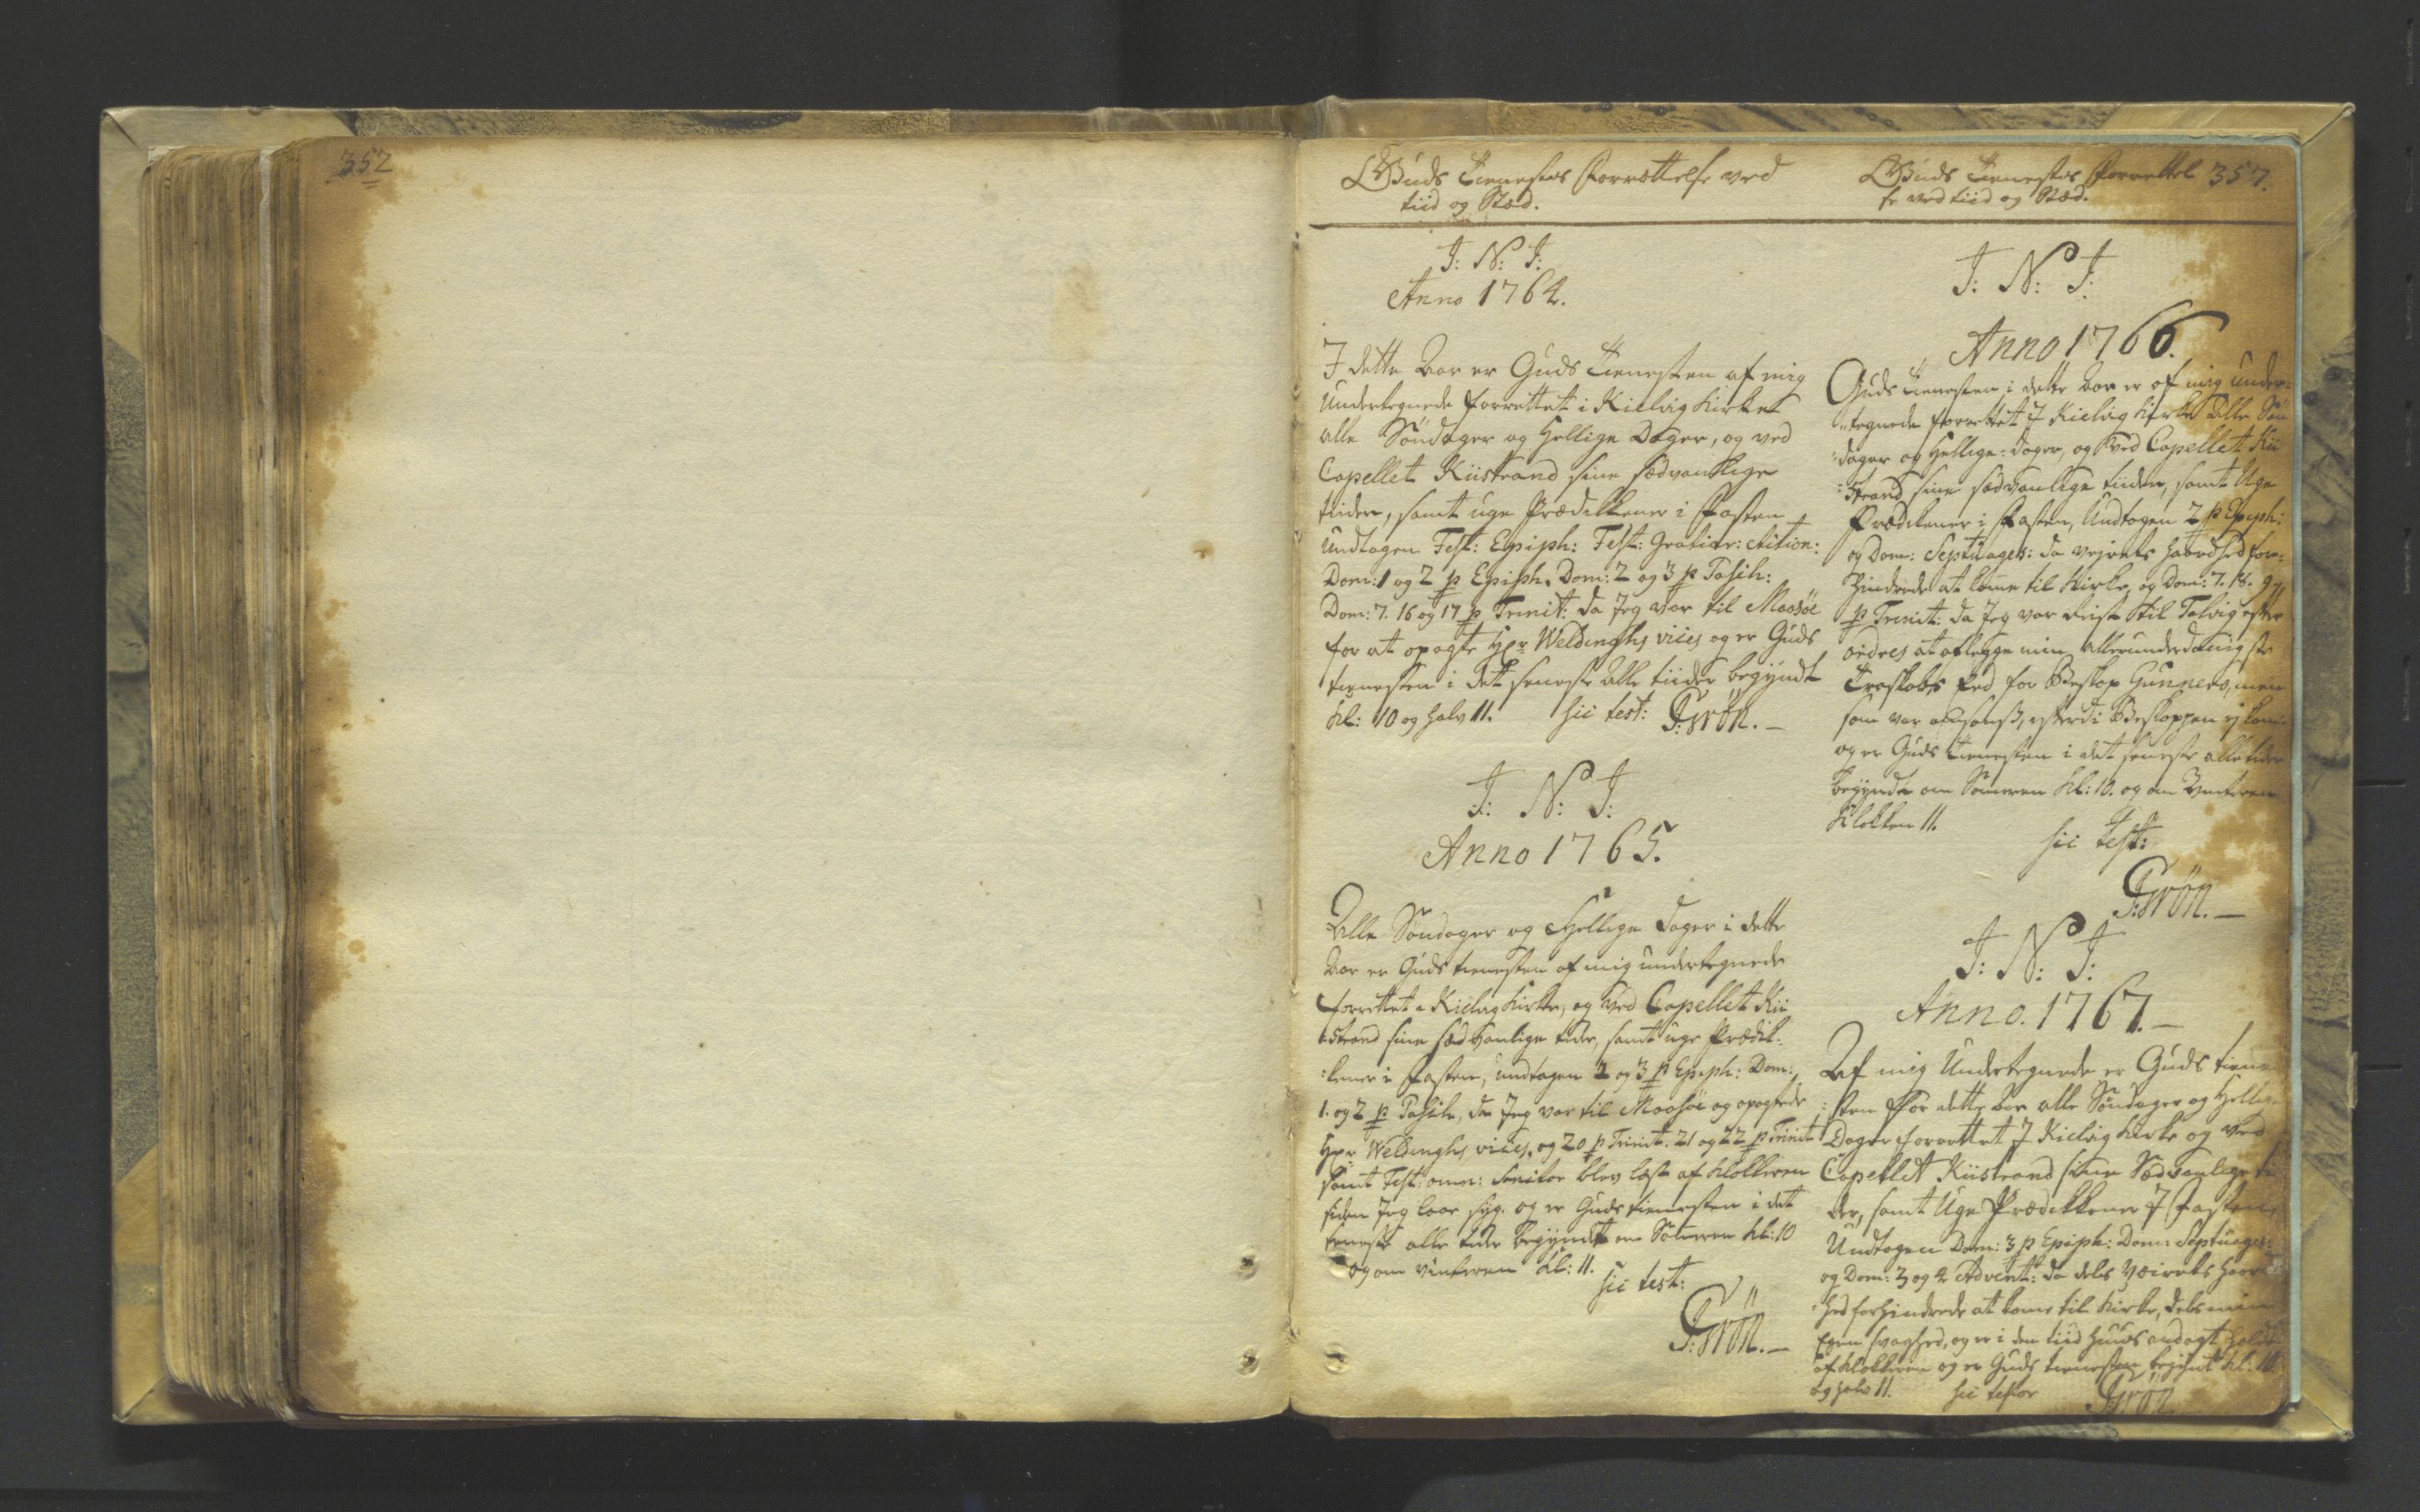 352
Guds Tienestes Forrettelse ved
tiid og Stæd.
J: N: J:
Anno 1764.
I dette Aar er Guds Tienesten af mig
Undertegnede forrettet i Kielvig Kirke
alle Søndager og Hellige Dager, og ved
Capellet Kiistrand sine sædvanlige
tiider, samt uge Prædikkener i Fasten
undtagen Fest: Epiph: Fest:
Dom: 1 og 2 p Epiph. Dom: 2 og 3 p Pasch:
Dom: 7. 16 og 17 p Trinit: da jeg var til Maasøe
for at opagte Hr Weldinghs vices og er Guds
tienesten i det seneste alle tiider begyndt
Kl: 10 og halv 11. sic test: Grøn.
J: N: J:
Anno 1765.
Alle Søndager og Hellige Dager i dette
Aar er Guds tienesten af mig undertegnede
forrettet i Kielvig Kirke, og ved Capellet Kii
strand sine sædvanlige tider, samt uge Prædik-
:kener i Fasten, undtagen 2 og 3 p Epiph: Dom:
1. og 2 p Pasch, da jeg var til Maasøe og opagtede
Hr Weldinghs vices, og 20 p Trinit. 21 og 22 p Trinit
samt Fest: omn: blev læst af Klokkeren
siden jeg laae syg. og er Guds tienesten i det
seneste alle tider begyndt om Sommeren Kl: 10
og om vinteren Kl: 11.
sic test:
Grøn.
Guds Tienestes Forrettel 357.
se ved tiid og Stæd.
J: N: J:
Anno 1766.
Guds Tienesten i dette Aar er af mig under-
tegnede forrettet I Kielvig Kirke alle Søn
dager og Hellige-dager, og ved Capellet Kii
:strand sine sædvanlige tiider, samt Uge
Prædikener i Fasten, Undtagen 2 p Epiph:
og Dom: Septuages: da vejrets haardhed for-
hindrede at komme til Kirke, og Dom: 7. 18.
p Trinit: da jeg var reist til Talvig efter
ordres at aflegge min allerunderdanigste
Troskabs Eed for Biskop Gunnero, men
som var omsonst, efterdi Biskoppen ej kom
og er Guds Tienesten i det seneste alletider
begyndt om Sommeren Kl: 10. og om Vinteren
Klokken 11.
sic test:
Grøn.
J: N: J:
Anno. 1767.
Af mig Undertegnede er Guds tiene
:sten for dette Aar alle Søndager og Hellige
Dager forrettet I Kielvig Kirke og ved
Capellet Kiistrand sine Sædvanlige ti
der, samt Uge Prædikkener I Fasten,
Undtagen Dom: 3 p Epiph: Dom: Septuages:
og Dom: 3 og 4 Advent: da dels Veirets haard
:hed forhindrede at kome til Kirke, dels min
Egen svaghed, og er i den tiid huus andagt holdt
af Klokkeren og er Guds tienesten begyndt Kl: 10
og halv 11. sic testor Grøn